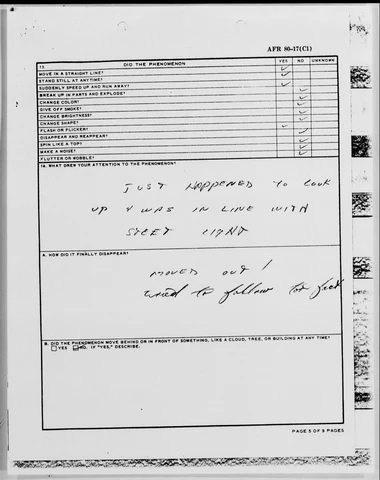 AFR 80-17(C1)
13. DID THE PHENOMENON YES NO UNKNOWN
MOVE IN A STRAIGHT LINE? ✓
STAND STILL AT ANYTIME? ✓
SUDDENLY SPEED UP AND RUN AWAY? ✓
BREAK UP IN PARTS AND EXPLODE? ✓
CHANGE COLOR? ✓
GIVE OFF SMOKE? ✓
CHANGE BRIGHTNESS? ✓
CHANGE SHAPE? ✓
FLASH OR FLICKER? ✓
DISAPPEAR AND REAPPEAR? ✓
SPIN LIKE A TOP? ✓
MAKE A NOISE? ✓
FLUTTER OR WOBBLE?
14. WHAT DREW YOUR ATTENTION TO THE PHENOMENON?
JUST HAPPENED TO LOOK
UP & WAS IN LINE WITH
STEET LIGHT
A. HOW DID IT FINALLY DISAPPEAR?
MOVED OUT!
tried to follow to
B. DID THE PHENOMENON MOVE BEHIND OR IN FRONT OF SOMETHING, LIKE A CLOUD, TREE, OR BUILDING AT ANY TIME?
YES NO. IF "YES," DESCRIBE.
PAGE 5 OF 9 PAGES